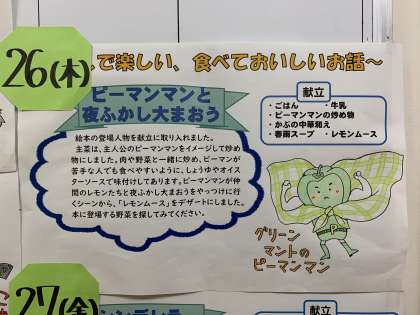 26(木)
んで楽しい、食べておいしいお話～
ピーマンマンと
夜ふかし大まおう
絵本の登場人物を献立に取り入れました。
主菜は、主人公のピーマンマンをイメージして炒め
物にしました。肉や野菜と一緒に炒め、ピーマンが
苦手な人でも食べやすいように、しょうゆやオイス
ターソースで味付けしてあります。ピーマンマンが仲
間のレモンたちと夜ふかし大まおうをやっつけに行
くシーンから、「レモンムース」をデザートにしました。
本に登場する野菜を探してみてください。
献立
・ごはん　・牛乳
・ピーマンマンの炒め物
・かぶの中華和え
・春雨スープ　・レモンムース
グリーン
マントの
ピーマンマン
27(金)
シンデレラ
献立